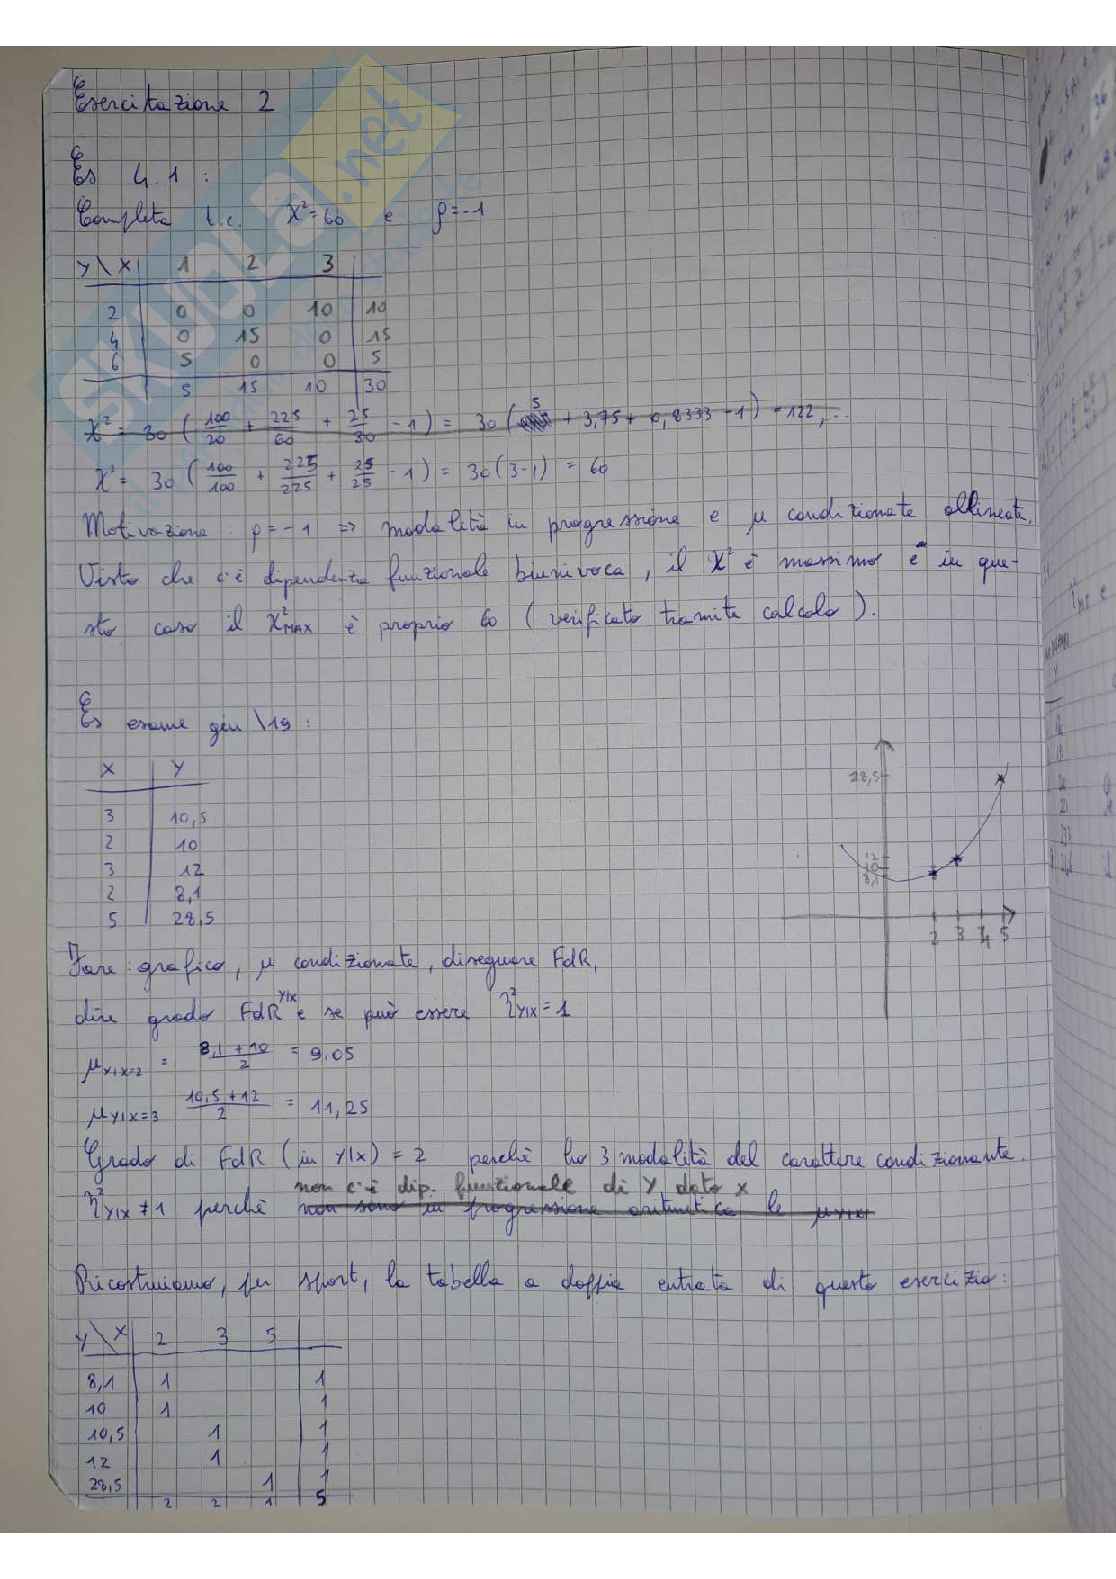 Esercitazione 2
Es 4.1:
Completa t.c. χ²=60 e ρ=-1
Y \ X 1 2 3
2 0 0 10 10
4 0 15 0 15
6 5 0 0 5
5 15 10 30
χ² = 30 (100/20 + 225/60 + 25/30 - 1) = 30 (5 + 3,75 + 0,8333 - 1) = 122,...
χ² = 30 (100/100 + 225/225 + 25/25 - 1) = 30 (3-1) = 60
Motivazione: ρ=-1 => modalità in progressione e μ condizionate allineate.
Visto che c'è dipendenza funzionale biunivoca, il χ² è massimo e in que-
sto caso il χ²MAX è proprio 60 (verificato tramite calcolo).
Es esame gen \19:
X Y
3 10,5
2 10
3 12
2 8,1
5 28,5
28,5
12
10
8,1
2 3 4 5
Fare: grafico, μ condizionate, disegnare FdR,
dire grado FdR Y|X e se può essere η²Y|X = 1
μY|X=2 = 8,1 + 10 / 2 = 9,05
μY|X=3 10,5 + 12 / 2 = 11,25
Grado di FdR (in Y|X) = 2 perchè ho 3 modalità del carattere condizionante.
non c'è dip. funzionale di Y dato X
η²Y|X ≠ 1 perchè non sono in progressione aritmetica le μY|X
Ricostruiamo, per sport, la tabella a doppia entrata di questo esercizio:
Y \ X 2 3 5
8,1 1 1
10 1 1
10,5 1 1
12 1 1
28,5 1 1
2 2 1 5
SKUOLA.net